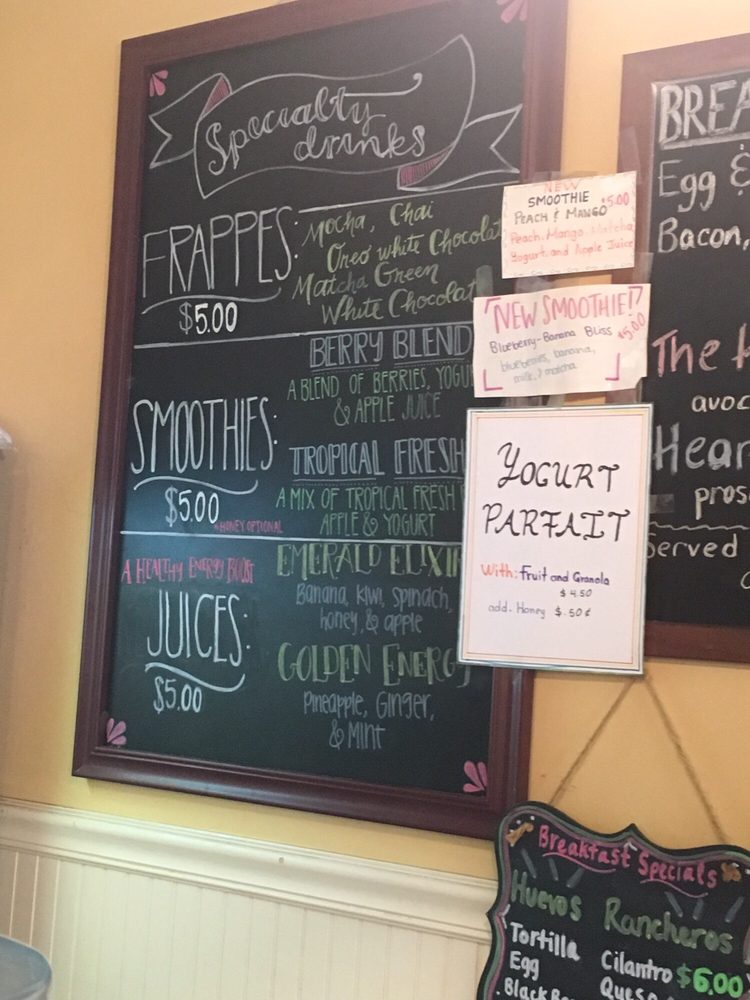 Specialty
drinks
FRAPPES:
$5.00
Mocha, Chai
Oreo White Chocolat
Matcha Green
White Chocolat
SMOOTHIES:
$5.00
*HONEY OPTIONAL
BERRY BLEND
A BLEND OF BERRIES, YOGU
& APPLE JUICE
TROPICAL FRESH
A MIX OF TROPICAL FRESH
APPLE & YOGURT
A HEALTHY ENERGY BOOST
JUICES:
$5.00
EMERALD ELIXI
Banana, kiwi, spinach,
honey, & apple
GOLDEN ENERGY
Pineapple, Ginger,
& Mint
NEW
SMOOTHIE $5.00
PEACH & MANGO
Peach, Mango, Matcha
Yogurt, and Apple Juice
NEW SMOOTHIE!
Blueberry-Banana Bliss $5.00
blueberries, banana,
milk, & matcha
YOGURT
PARFAIT
With: Fruit and Granola
$4.50
add. Honey $.50¢
BREA
Egg &
Bacon,
The
avoc
Hear
pros
Served
Breakfast Specials
Huevos Rancheros
Tortilla Cilantro $6.00
Egg Queso
Black